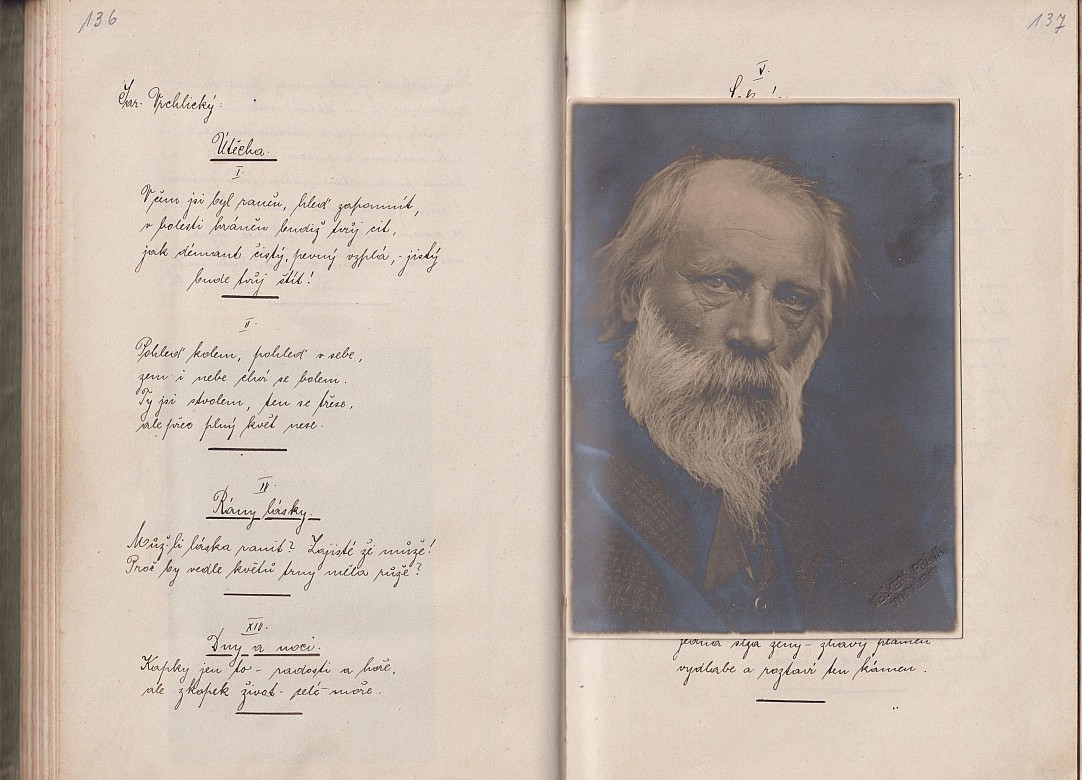 136
Jar. Vrchlický:
Útěcha.
I
V čem jsi byl raněn, hleď zapomnít,
v bolesti hráněn budiž tvůj cit,
jak démant čistý, pevný vzplá, - jistý
bude tvůj štít!
II.
Pohleď kolem, pohleď v sebe,
zem i nebe chví se bolem.
Ty jsi stvolem, ten se třese,
ale přec plný květ nese.
Rány lásky.
Můž-li láska ranit? Zajisté že může!
Proč by vedle květů trny měla růže?
XIV.
Dny a noci.
Kapky jen to - radosti a hoře,
ale z kapek život - celé moře.
137
V.
jedna slza ženy - žhavý plamen
vydlabe a roztaví ten kámen.